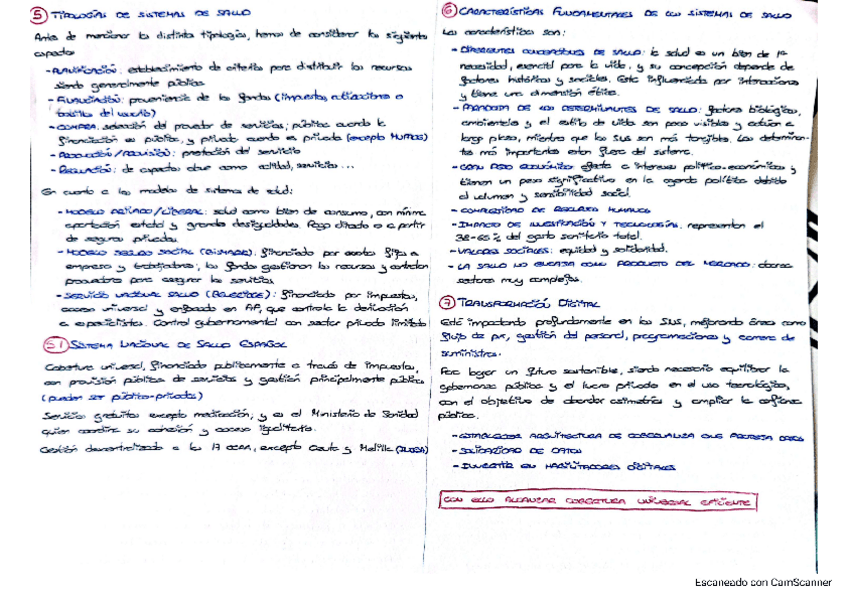 5 TIPOLOGÍAS DE SISTEMAS DE SALUD
Antes de mencionar las distintas tipologías, hemos de considerar los siguientes
aspectos
- PLANIFICACIÓN: establecimiento de criterios para distribuir los recursos
siendo generalmente pública
- FINANCIACIÓN: proveniencia de los fondos (impuestos, cotizaciones o
bolsillo del usuario)
- COMPRA: selección del proveedor de servicios; pública cuando la
financiación es pública, y privada cuando es privada (excepto MUFACE)
- PRODUCCIÓN/PROVISIÓN: prestación del servicio
- REGULACIÓN: de aspectos clave como calidad, servicios...
En cuanto a los modelos de sistema de salud:
- MODELO PRIVADO/LIBERAL: salud como bien de consumo, con mínima
aportación estatal y grandes desigualdades. Pago directo o a partir
de seguros privados.
- MODELO SEGURO SOCIAL (BISMARCK): financiado por cuotas fijas a
empresa y trabajadores; los fondos gestionan los recursos y contratan
proveedores para asegurar los servicios
- SERVICIO NACIONAL SALUD (BEVERIDGE): financiado por impuestos,
acceso universal y enfocado en AP, que controla la derivación
a especialistas. Control gubernamental con sector privado limitado
5.1 SISTEMA NACIONAL DE SALUD ESPAÑOL
Cobertura universal, financiado públicamente a través de impuestos,
con provisión pública de servicios y gestión principalmente pública
(pueden ser público-privadas)
Servicios gratuitos excepto medicación; y es el Ministerio de Sanidad
quien coordina su cohesión y acceso igualitario.
Gestión descentralizada a las 17 CCAA, excepto Ceuta y Melilla
6 CARACTERÍSTICAS FUNDAMENTALES DE LOS SISTEMAS DE SALUD
Las características son:
- DIFERENTES CONCEPCIONES DE SALUD: la salud es un bien de 1ª
necesidad, esencial para la vida, y su concepción depende de
factores históricos y sociales. Está influenciada por interacciones
y tiene una dimensión ética.
- PARADOJA DE LOS DETERMINANTES DE SALUD: factores biológicos,
ambientales y el estilo de vida son poco visibles y actúan a
largo plazo, mientras que los SNS son más tangibles. Los determinan-
tes más importantes están fuera del sistema.
- GRAN PESO ECONÓMICO: afecta a intereses político-económicos y
tienen un peso significativo en la agenda política debido
al volumen y sensibilidad social.
- COMPLEJIDAD DE RECURSOS HUMANOS
- IMPACTO DE INVESTIGACIÓN Y TECNOLOGÍAS: representan el
38-65% del gasto sanitario total.
- VALORES SOCIALES: equidad y solidaridad.
- LA SALUD NO ENCAJA COMO PRODUCTO DEL MERCADO: abarca
sectores muy complejos.
7 TRANSFORMACIÓN DIGITAL
Está impactando profundamente en los SNS, mejorando áreas como
flujo de pac, gestión del personal, programaciones y cadena de
suministros.
Para lograr un futuro sostenible, siendo necesario equilibrar la
gobernanza pública y el lucro privado en el uso tecnológico,
con el objetivo de abordar asimetrías y ampliar la confianza
pública.
- ESTABLECER ARQUITECTURA DE GOBERNANZA QUE PROTEJA DATOS
- SOLIDARIDAD DE DATOS
- INVERTIR EN HABILITADORES DIGITALES
CON ELLO ALCANZAR COBERTURA UNIVERSAL EFICIENTE
Escaneado con CamScanner